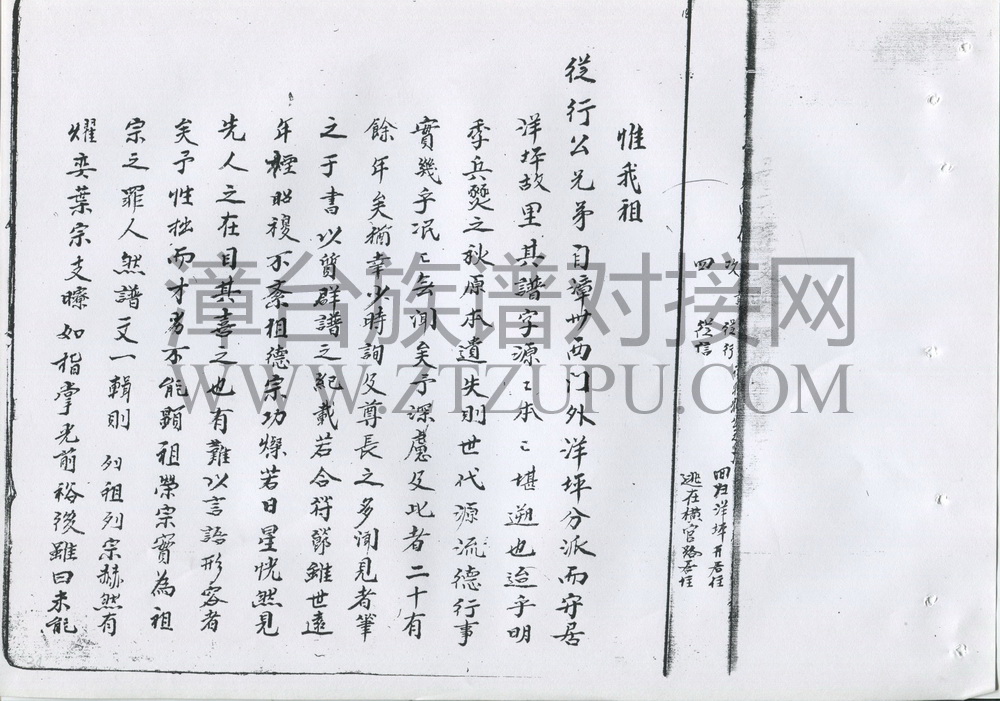 四 從信
從行
四归洋坪开居住
逃在横官路居住
惟我祖
從行公兄弟自漳州西门外洋坪分派而守居
洋坪故里其譜字源〻本〻堪遡也迨乎明
季兵燹之秋原本遺失則世代源流德行事
實幾乎泯〻無闻矣予深慮及此者二十有
餘年矣猶幸以時詢及尊長之多闻見者筆
之于書以質群譜之紀載若合符節雖世遠
年湮昭穆不紊祖德宗功燦若日星恍然見
先人之在目其喜之也有難以言語形容者
矣予性拙而才劣不能顕祖榮宗實為祖
宗之罪人然譜文一輯則 列祖列宗赫然有
耀奕葉宗支瞭如指掌光前裕後雖曰未能
漳台族谱对接网
WWW.ZTZUPU.COM